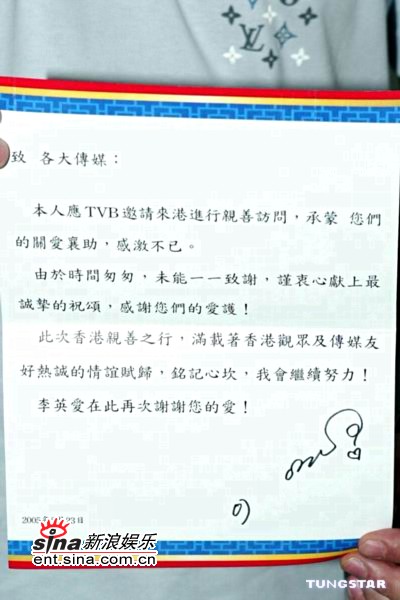 致 各大傳媒：
本人應TVB邀請來港進行親善訪問，承蒙 您們
的關愛襄助，感激不已。
由於時間匆匆，未能一一致謝，謹衷心獻上最
誠摯的祝頌，感謝您們的愛護！
此次香港親善之行，滿載著香港觀眾及傳媒友
好熱誠的情誼賦歸，銘記心坎，我會繼續努力！
李英愛在此再次謝謝您的愛！
sina新浪娱乐
ent.sina.com.cn
TUNGSTAR